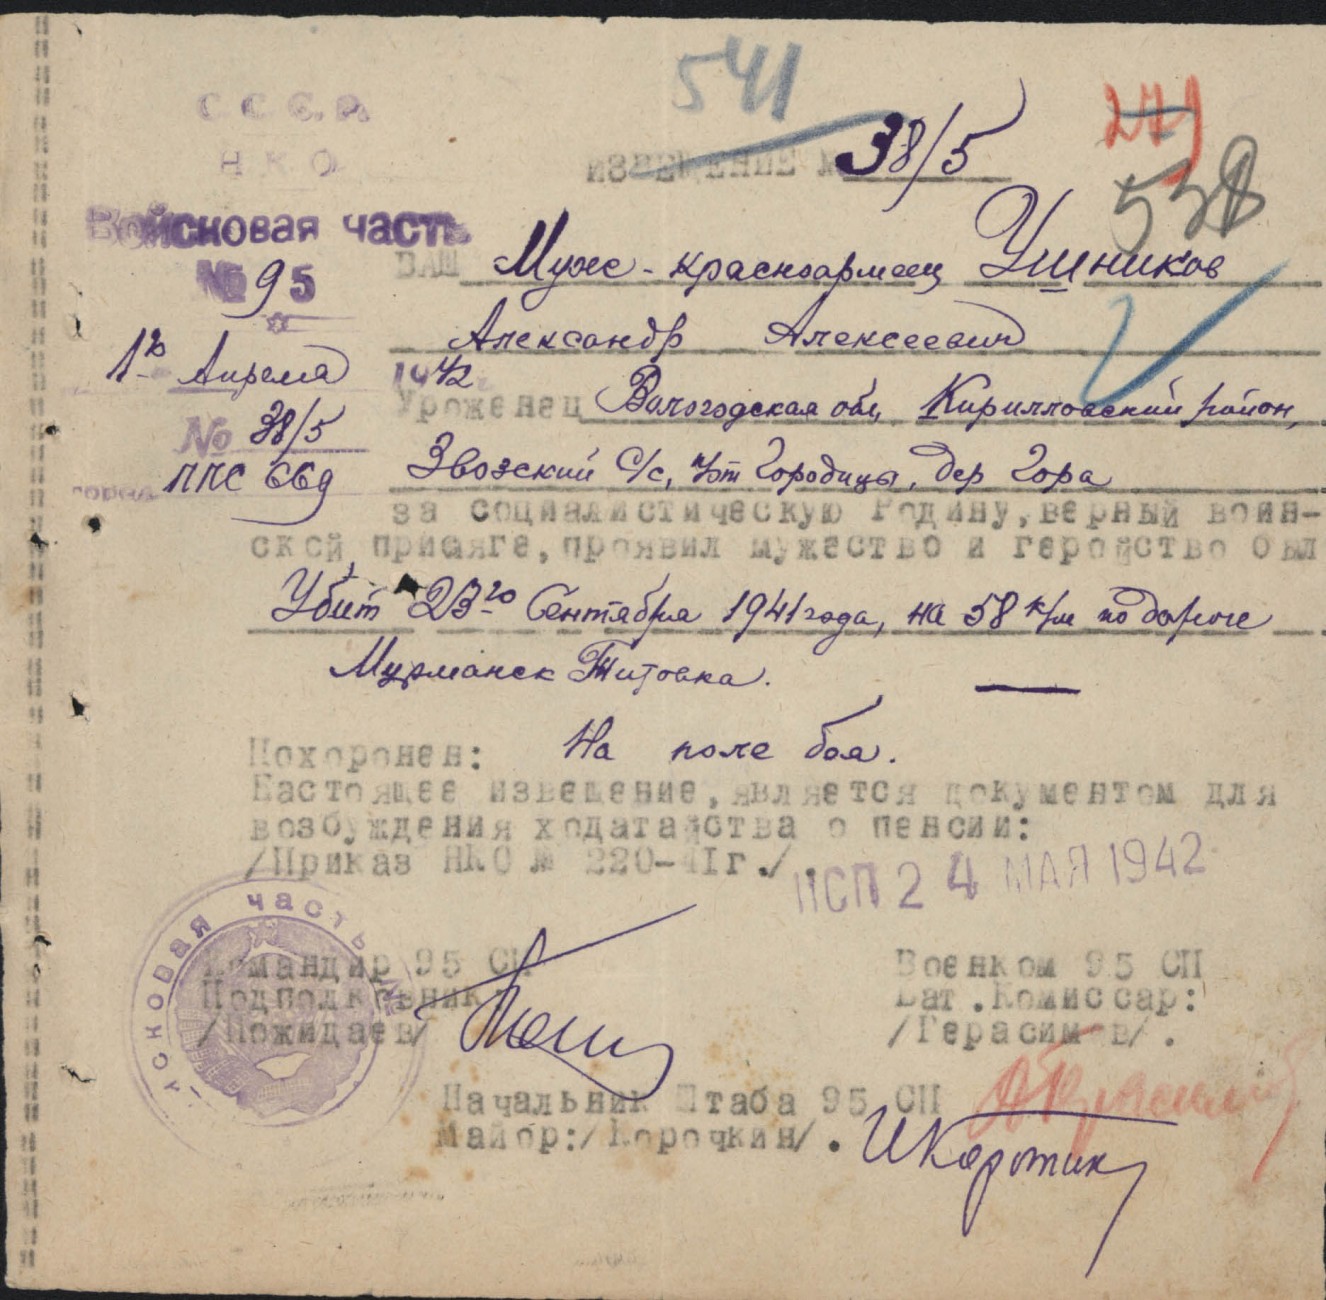 541
С С С Р
Н К О
ИЗВЕЩЕНИЕ № 38/5
271
538
Войсковая часть
№ 95
ВАШ Муж - красноармеец Ушников
Александр Алексеевич
1го Апреля 1942
Уроженец Вологодская обл, Кирилловский район,
№ 38/5
город ППС 669
Звозский С/с, п/от Городицы, дер Гора
за социалистическую Родину, верный воин-
ской присяге, проявил мужество и геройство был
Убит 23го Сентября 1941 года, на 58 к/м по дороге
Мурманск Титовка.
Похоронен: На поле боя.
Настоящее извещение, является документом для
возбуждения ходатайства о пенсии:
/Приказ НКО № 220-41г./.
ПСП 24 МАЯ 1942
Командир 95 СП
Подполковник
/Пожидаев/
Военком 95 СП
Бат.Комиссар:
/Герасимов/.
Начальник Штаба 95 СП
Майор:/Корочкин/.